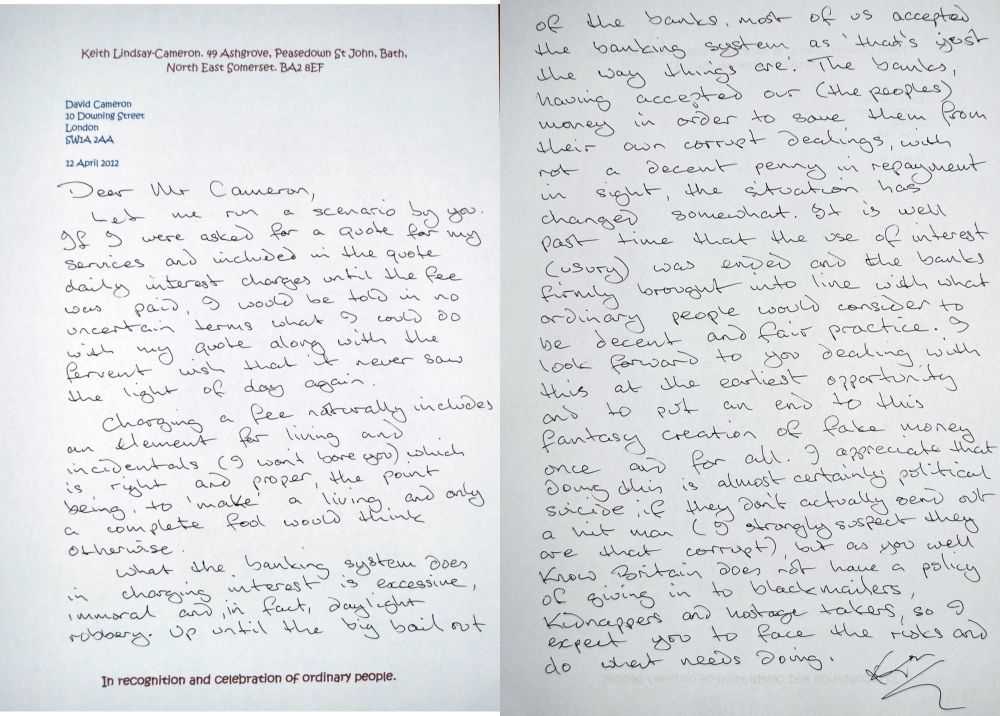 Keith Lindsay-Cameron. 49 Ashgrove, Peasedown St John, Bath,
North East Somerset. BA2 8EF
David Cameron
10 Downing Street
London
SW1A 2AA
12 April 2012
Dear Mr Cameron,
Let me run a scenario by you.
If I were asked for a quote for my
services and included in the quote
daily interest charges until the fee
was paid, I would be told in no
uncertain terms what I could do
with my quote along with the
fervent wish that it never saw
the light of day again.
Charging a fee naturally includes
an element for living and
incidentals (I won't bore you) which
is right and proper, the point
being, to 'make' a living and only
a complete fool would think
otherwise.
What the banking system does
in charging interest is excessive,
immoral and, in fact, daylight
robbery. Up until the big bail out
In recognition and celebration of ordinary people.
of the banks, most of us accepted
the banking system as 'that's just
the way things are'. The banks,
having accepted our (the peoples)
money in order to save them from
their own corrupt dealings, with
not a decent penny in repayment
in sight, the situation has
changed somewhat. It is well
past time that the use of interest
(usury) was ended and the banks
firmly brought into line with what
ordinary people would consider to
be decent and fair practice. I
look forward to you dealing with
this at the earliest opportunity
and to put an end to this
fantasy creation of fake money
once and for all. I appreciate that
doing this is almost certainly political
suicide, if they don't actually send out
a hit man (I strongly suspect they
are that corrupt), but as you well
know Britain does not have a policy
of giving in to blackmailers,
kidnappers and hostage takers, so I
expect you to face the risks and
do what needs doing.